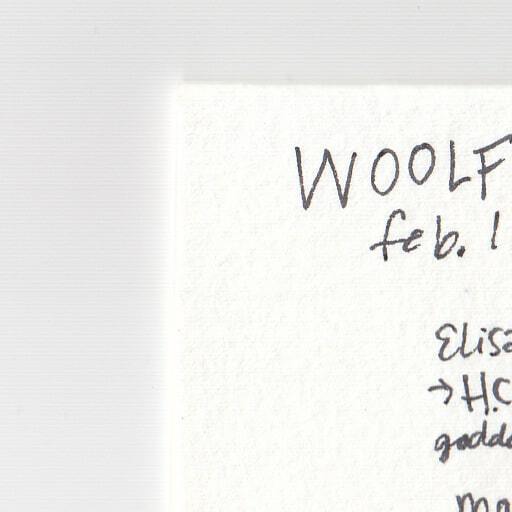 WOOLF
feb. 1
Elisa
→ H.C
godda
ma